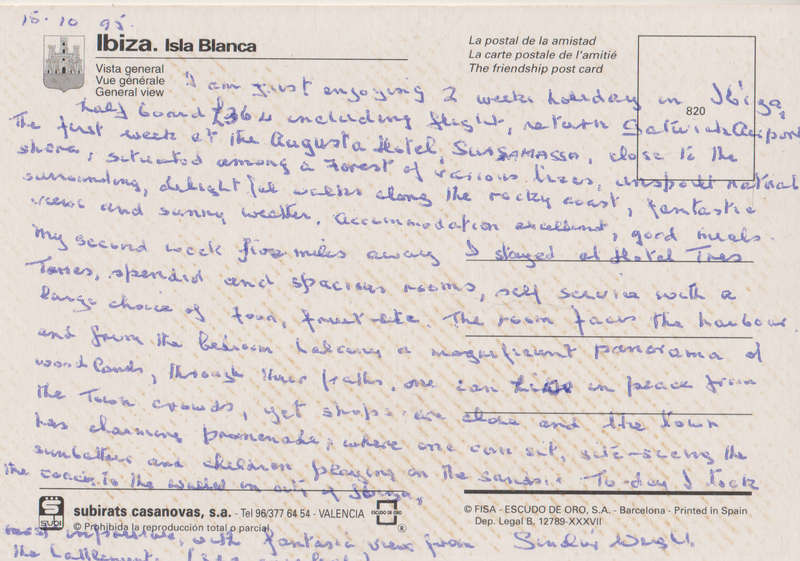 15.10 95.
Ibiza. Isla Blanca
Vista general
Vue générale
General view
La postal de la amistad
La carte postale de l'amitié
The friendship post card
820
I am just enjoying 2 weeks holiday in Ibiza,
half board £364 including flight, return Gatwick Airport
The first week at the Augusta Hotel, close to the
shore, situated among a Forest of various trees, unspoilt natural
surrounding, delightful walks along the rocky coast, fantastic
views and sunny weather. Accommodation excellent, good meals.
My second week five miles away I stayed at Hotel Tres
Torres, spendid and spacious rooms, self service with a
large choice of food, fruit etc. The room faces the harbour
and from the bedroom balcony a magnificent panorama of
woodlands, through their paths, one can hike in peace from
the Town crowds, yet shops are close and the town
has charming promenade, where one can sit, site-seeing the
sunbathers and children playing on the sands. To-day I took
the coach to the walled in of Ibiza,
most impressive, with fantasic view from
the battlements.
subirats casanovas, s.a. - Tel 96/377 64 54 - VALENCIA
SUBI
ESCUDO DE ORO
®
© Prohibida la reproducción total o parcial
© FISA - ESCUDO DE ORO, S.A. - Barcelona - Printed in Spain
Dep. Legal B, 12789-XXXVII